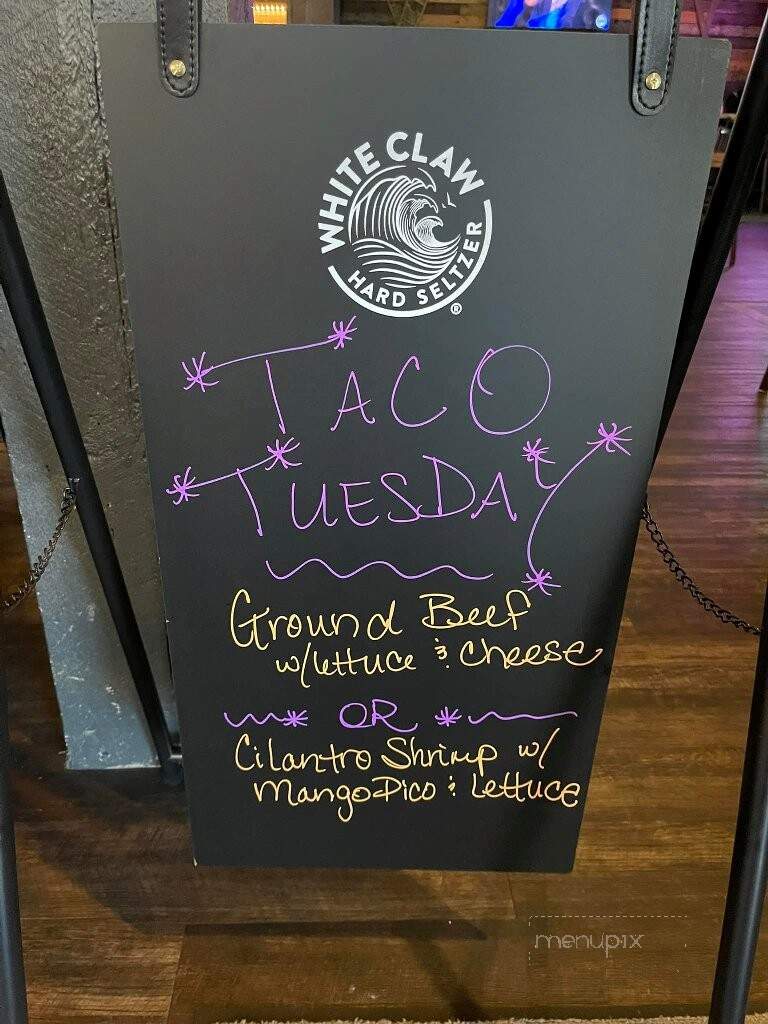 WHITE CLAW
HARD SELTZER
®
TACO
TUESDAY
Ground Beef
w/lettuce & Cheese
OR
Cilantro Shrimp w/
Mango Pico & Lettuce
menupix